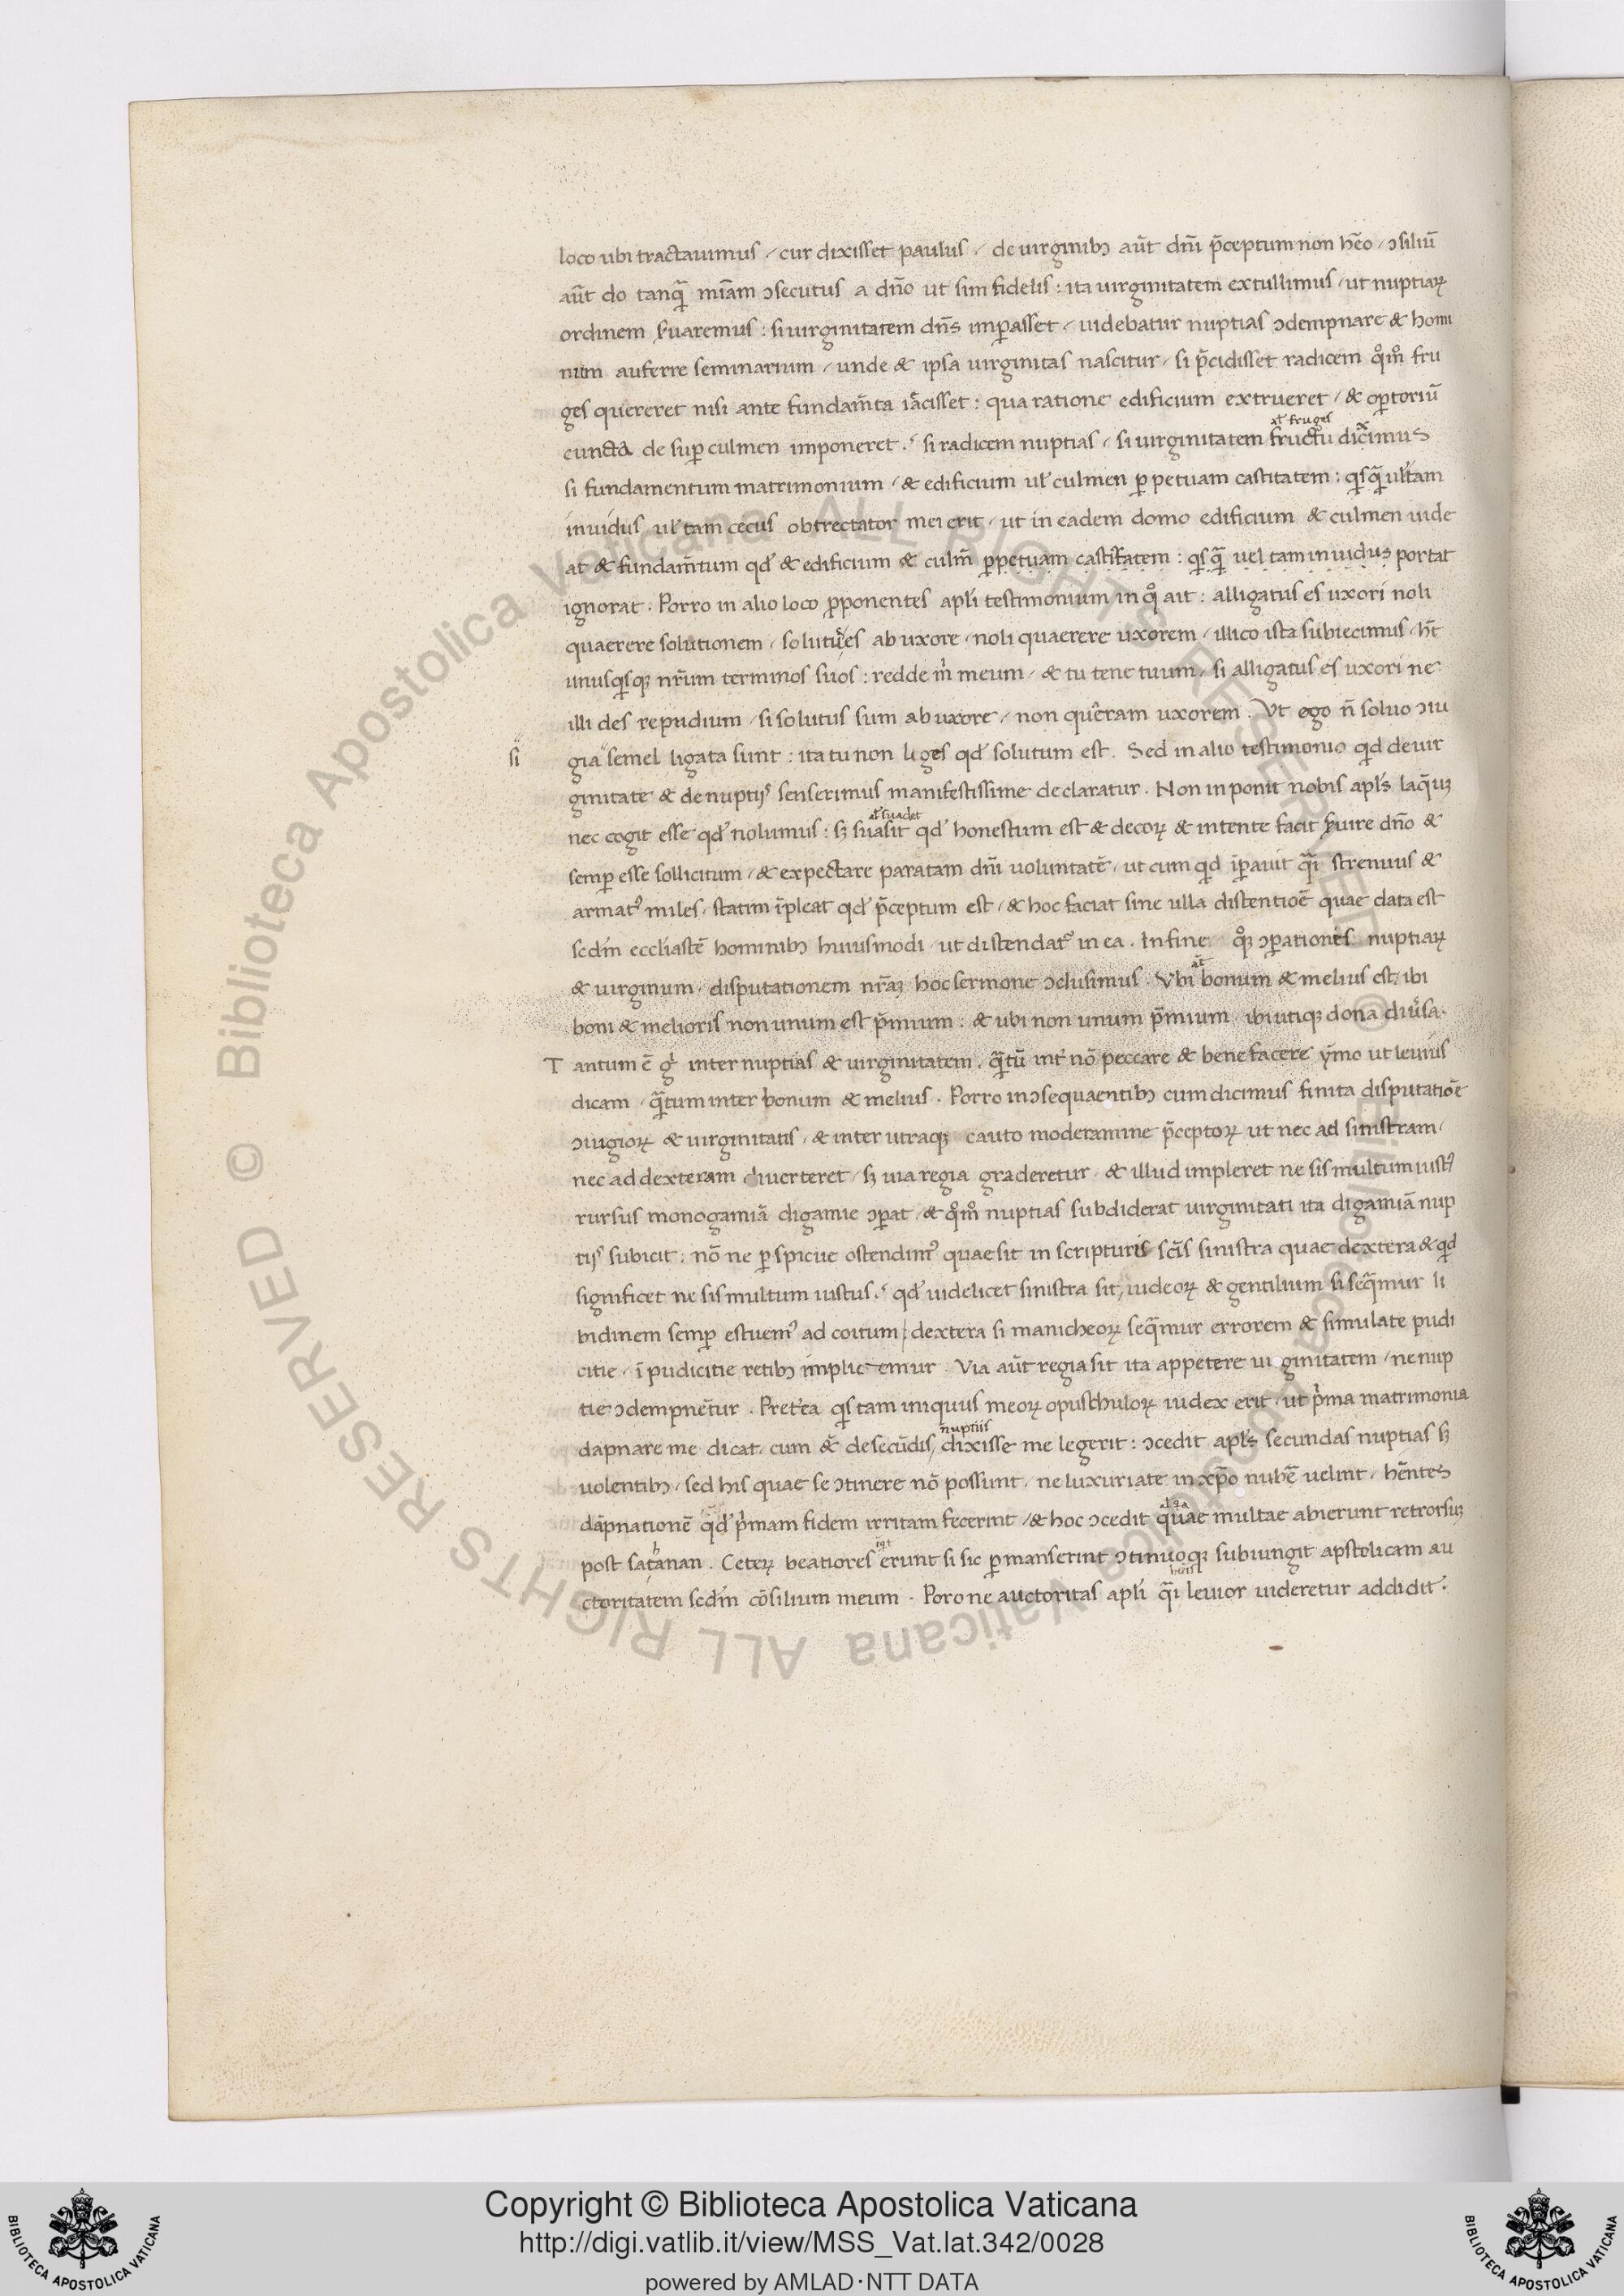 loco ubi tractauimus / cur dixisset paulus / de uirginibꝫ aūt dn̄i p̄ceptum non hēo / ɔsiliū
aūt do tanqᷓ miāam ɔsecutus a dn̄o ut sim fidelis : ita uirginitatem extullimus / ut nuptiaꝝ
ordinem ẜuaremus : si uirginitatem dn̄s imꝑasset / uidebatur nuptias ɔdempnare & homi
num auferre seminarium / unde & ipsa uirginitas nascitur / si p̄cidisset radicem qͦmͦ fru
ges quereret nisi ante fundam̄ta iācisset : qua ratione edificium extrueret / & oꝑtoriū
cuncta de suꝑ culmen imponeret . si radicem nuptias / si uirginitatem fructu dicimus
al̄ fruges
si fundamentum matrimonium / & edificium ul̄ culmen ꝑpetuam castitatem : qiſqᷓ ul̄ tam
inuidus ul̄ tam cecus obtrectator mei erit / ut in eadem domo edificium & culmen uide
at & fundam̄tum qd̄ & edificium & culm̄ ꝑpetuam castitatem : qiſqᷓ uel tam inuidus portat
ignorat . Porro in alio loco ꝓponentes apl̄i testimonium in qͦ ait : alligatus es uxori noli
quaerere solutionem / solutus es ab uxore / noli quaerere uxorem / illico ista subiecimus / ht̄
unusqiſqꝫ nr̄um terminos suos : redde m̄ meum / & tu tene tuum / si alligatus es uxori ne
illi des repudium / si solutus sum ab uxore / non queram uxorem . Vt ego n̄ soluo ɔiu
si
gia semel ligata sunt : ita tu non liges qd̄ solutum est . Sed in alio testimonio qd de uir
ginitate & de nuptijs senserimus manifestissime declaratur . Non inponit nobis apl̄s laq̄uꝫ
nec cogit esse qd̄ nolumus : sꝫ suasit qd̄ honestum est & decoꝝ & intente facit ẜuire dn̄o &
al̄ suadet
semꝑ esse sollicitum / & expectare paratam dn̄i uoluntatē / ut cum qid īꝑauit qᷓi strenuus &
armatꝰ miles / statim īpleat qd̄ p̄ceptum est / & hoc faciat sine ulla distentiōe quae data est
scd̄m eccl̄iastē hominibꝫ huiusmodi / ut distendatᷣ in ea . In fine qͦꝫ ɔꝑationes nuptiaꝝ
& uirginum / disputationem nr̄aꝫ hoc sermone ɔclusimus . Vbi bonum & melius est / ibi
at̄
boni & melioris non unum est p̄mium : & ubi non unum p̄mium / ibi utiqꝫ dona diu̾sa .
Tantum ē g̾ inter nuptias & uirginitatem / qᷓtū int̾ nō peccare & bene facere ymo ut leuius
dicam / qᷓtum inter bonum & melius . Porro in ɔsequaentibꝫ cum dicimus finita disputatiōe
ɔiugioꝝ & uirginitatis / & inter utraqꝫ cauto moderamine p̄ceptoꝝ ut nec ad sinistram /
nec ad dexteram diuerteret / sꝫ uia regia graderetur / & illud impleret ne sis multum iustꝰ
rursus monogamiā digamie ɔꝑat / & qͦmͦ nuptias subdiderat uirginitati ita digamiā nup
tijs subicit . nō ne ꝑspicue ostendimꝰ quae sit in scripturis scīs sinistra quae dextera & qid
significet ne sis multum iustus . qd̄ uidelicet sinistra sit / iudeoꝝ & gentilium si seqᷓmur li
bidinem semꝑ estuemꝰ ad coitum / dextera si manicheoꝝ seqᷓmur errorem & simulate pudi
citie / īpudicitie retibꝫ implicemur . Via aūt regia sit ita appetere ui ginitatem / ne nup
tie ɔdempnētur . Pret̾ea qis tam iniquus meoꝝ opusculoꝝ iudex erit / ut pͥma matrimonia
dapnare me dicat / cum & de secūdis / dixisse me legerit : ɔcedit apl̄s secundas nuptias sꝫ
nuptiis
uolentibꝫ / sed his quae se ɔtinere nō possunt / ne luxuriate in xp̄o nubē uelint / hēntes
dāpnationē qd̄ pͥmam fidem irritam fecerint / & hoc ɔcedit quae multae abierunt retrorsuꝫ
al̄ qa
post satanan . Ceteꝝ beatiores erunt si sic ꝑmanserint ɔtinuoqꝫ subiungit apostolicam au
ctoritatem scd̄m cōsilium meum . Poro ne auctoritas apl̄i qᷓi leuior uideretur addidit .
Copyright © Biblioteca Apostolica Vaticana
http://digi.vatlib.it/view/MSS_Vat.lat.342/0028
powered by AMLAD·NTT DATA
BIBLIOTECA APOSTOLICA VATICANA
BIBLIOTECA APOSTOLICA VATICANA
© Biblioteca Apostolica Vaticana ALL RIGHTS RESERVED © Biblioteca Apostolica Vaticana ALL RIGHTS RESERVED